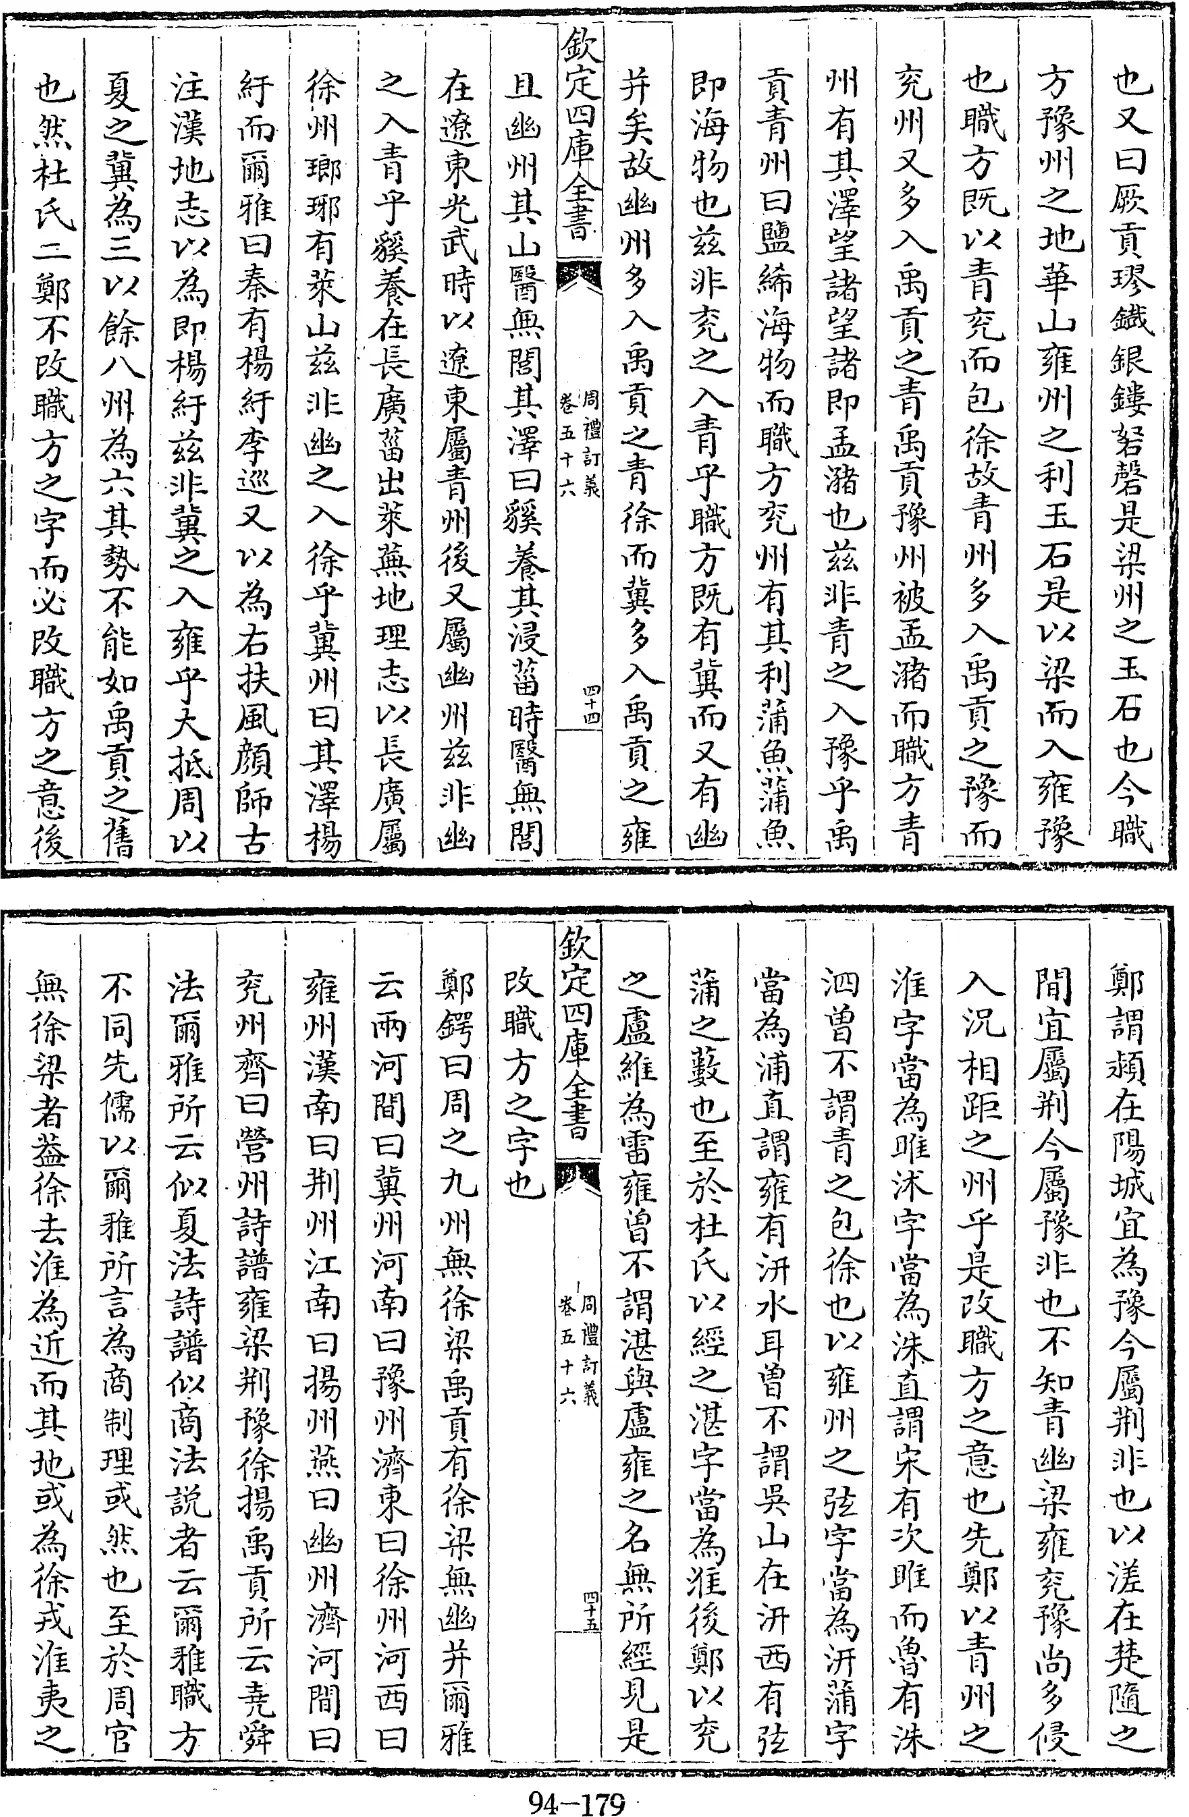 也又曰厥貢璆鐵銀鏤砮磬是梁州之玉石也今職
方豫州之地華山雍州之利玉石是以梁而入雍豫
也職方既以青兖而包徐故青州多入禹貢之豫而
兖州又多入禹貢之青禹貢豫州被孟潴而職方青
州有其澤望諸望諸即孟潴也兹非青之入豫乎禹
貢青州曰鹽絺海物而職方兖州有其利蒲魚蒲魚
即海物也兹非兖之入青乎職方既有冀而又有幽
并矣故幽州多入禹貢之青徐而冀多入禹貢之雍
欽定四庫全書
周禮訂義
卷五十六
四十四
且幽州其山醫無閭其澤曰貕養其浸菑時醫無閭
在遼東光武時以遼東屬青州後又屬幽州兹非幽
之入青乎貕養在長廣菑出萊蕪地理志以長廣屬
徐州瑯琊有萊山兹非幽之入徐乎冀州曰其澤楊
紆而爾雅曰秦有楊紆李巡又以為右扶風顔師古
注漢地志以為即楊紆兹非冀之入雍乎大抵周以
夏之冀為三以餘八州為六其勢不能如禹貢之舊
也然杜氏二鄭不改職方之字而必改職方之意後
鄭謂潁在陽城宜為豫今屬荆非也以溠在楚隨之
間宜屬荆今屬豫非也不知青幽梁雍兖豫尚多侵
入況相距之州乎是改職方之意也先鄭以青州之
淮字當為睢沭字當為洙直謂宋有次睢而魯有洙
泗曽不謂青之包徐也以雍州之弦字當為汧蒲字
當為浦直謂雍有汧水耳曽不謂吳山在汧西有弦
蒲之藪也至於杜氏以經之湛字當為淮後鄭以兖
之盧維為雷雍曽不謂湛與盧雍之名無所經見是
欽定四庫全書
周禮訂義
卷五十六
四十五
改職方之字也
鄭鍔曰周之九州無徐梁禹貢有徐梁無幽并爾雅
云兩河間曰冀州河南曰豫州濟東曰徐州河西曰
雍州漢南曰荆州江南曰揚州燕曰幽州濟河間曰
兖州齊曰營州詩譜雍梁荆豫徐揚禹貢所云堯舜
法爾雅所云似夏法詩譜似商法説者云爾雅職方
不同先儒以爾雅所言為商制理或然也至於周官
無徐梁者葢徐去淮為近而其地或為徐戎淮夷之
94-179